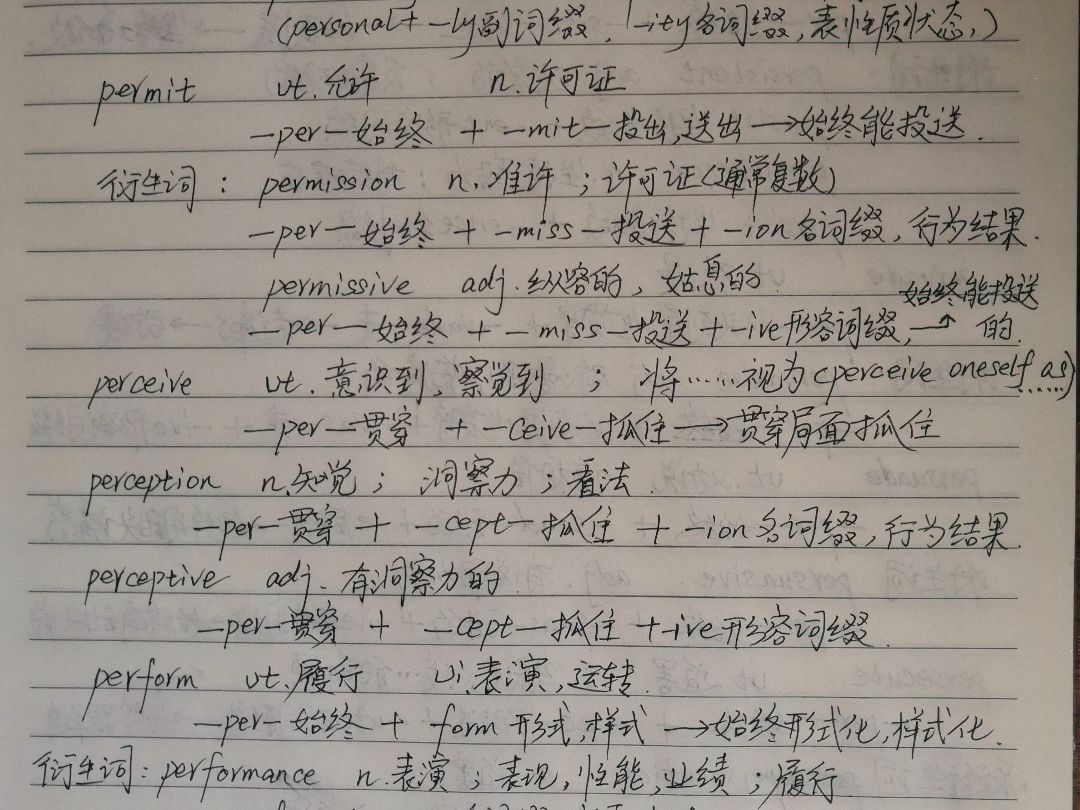 (personal+ -ly副词缀, -ity名词缀,表性质状态,)
permit vt.允许 n.许可证
-per-始终 + -mit-投出,送出→始终能投送.
衍生词: permission n.准许;许可证(通常复数)
-per-始终 + -miss-投送 + -ion名词缀,行为结果.
permissive adj.纵容的,姑息的.
始终能投送
-per-始终 + -miss-投送 + -ive形容词缀,→的.
perceive vt.意识到,察觉到; 将……视为(perceive oneself as)
-per-贯穿 + -ceive-抓住→贯穿局面抓住
perception n.知觉;洞察力;看法.
-per-贯穿 + -cept-抓住 + -ion名词缀,行为结果.
perceptive adj.有洞察力的
-per-贯穿 + -cept-抓住 +-ive形容词缀.
perform vt.履行 vi.表演,运转.
-per-始终 + form形式,样式→始终形式化,样式化.
衍生词: performance n.表演;表现,性能,业绩;履行